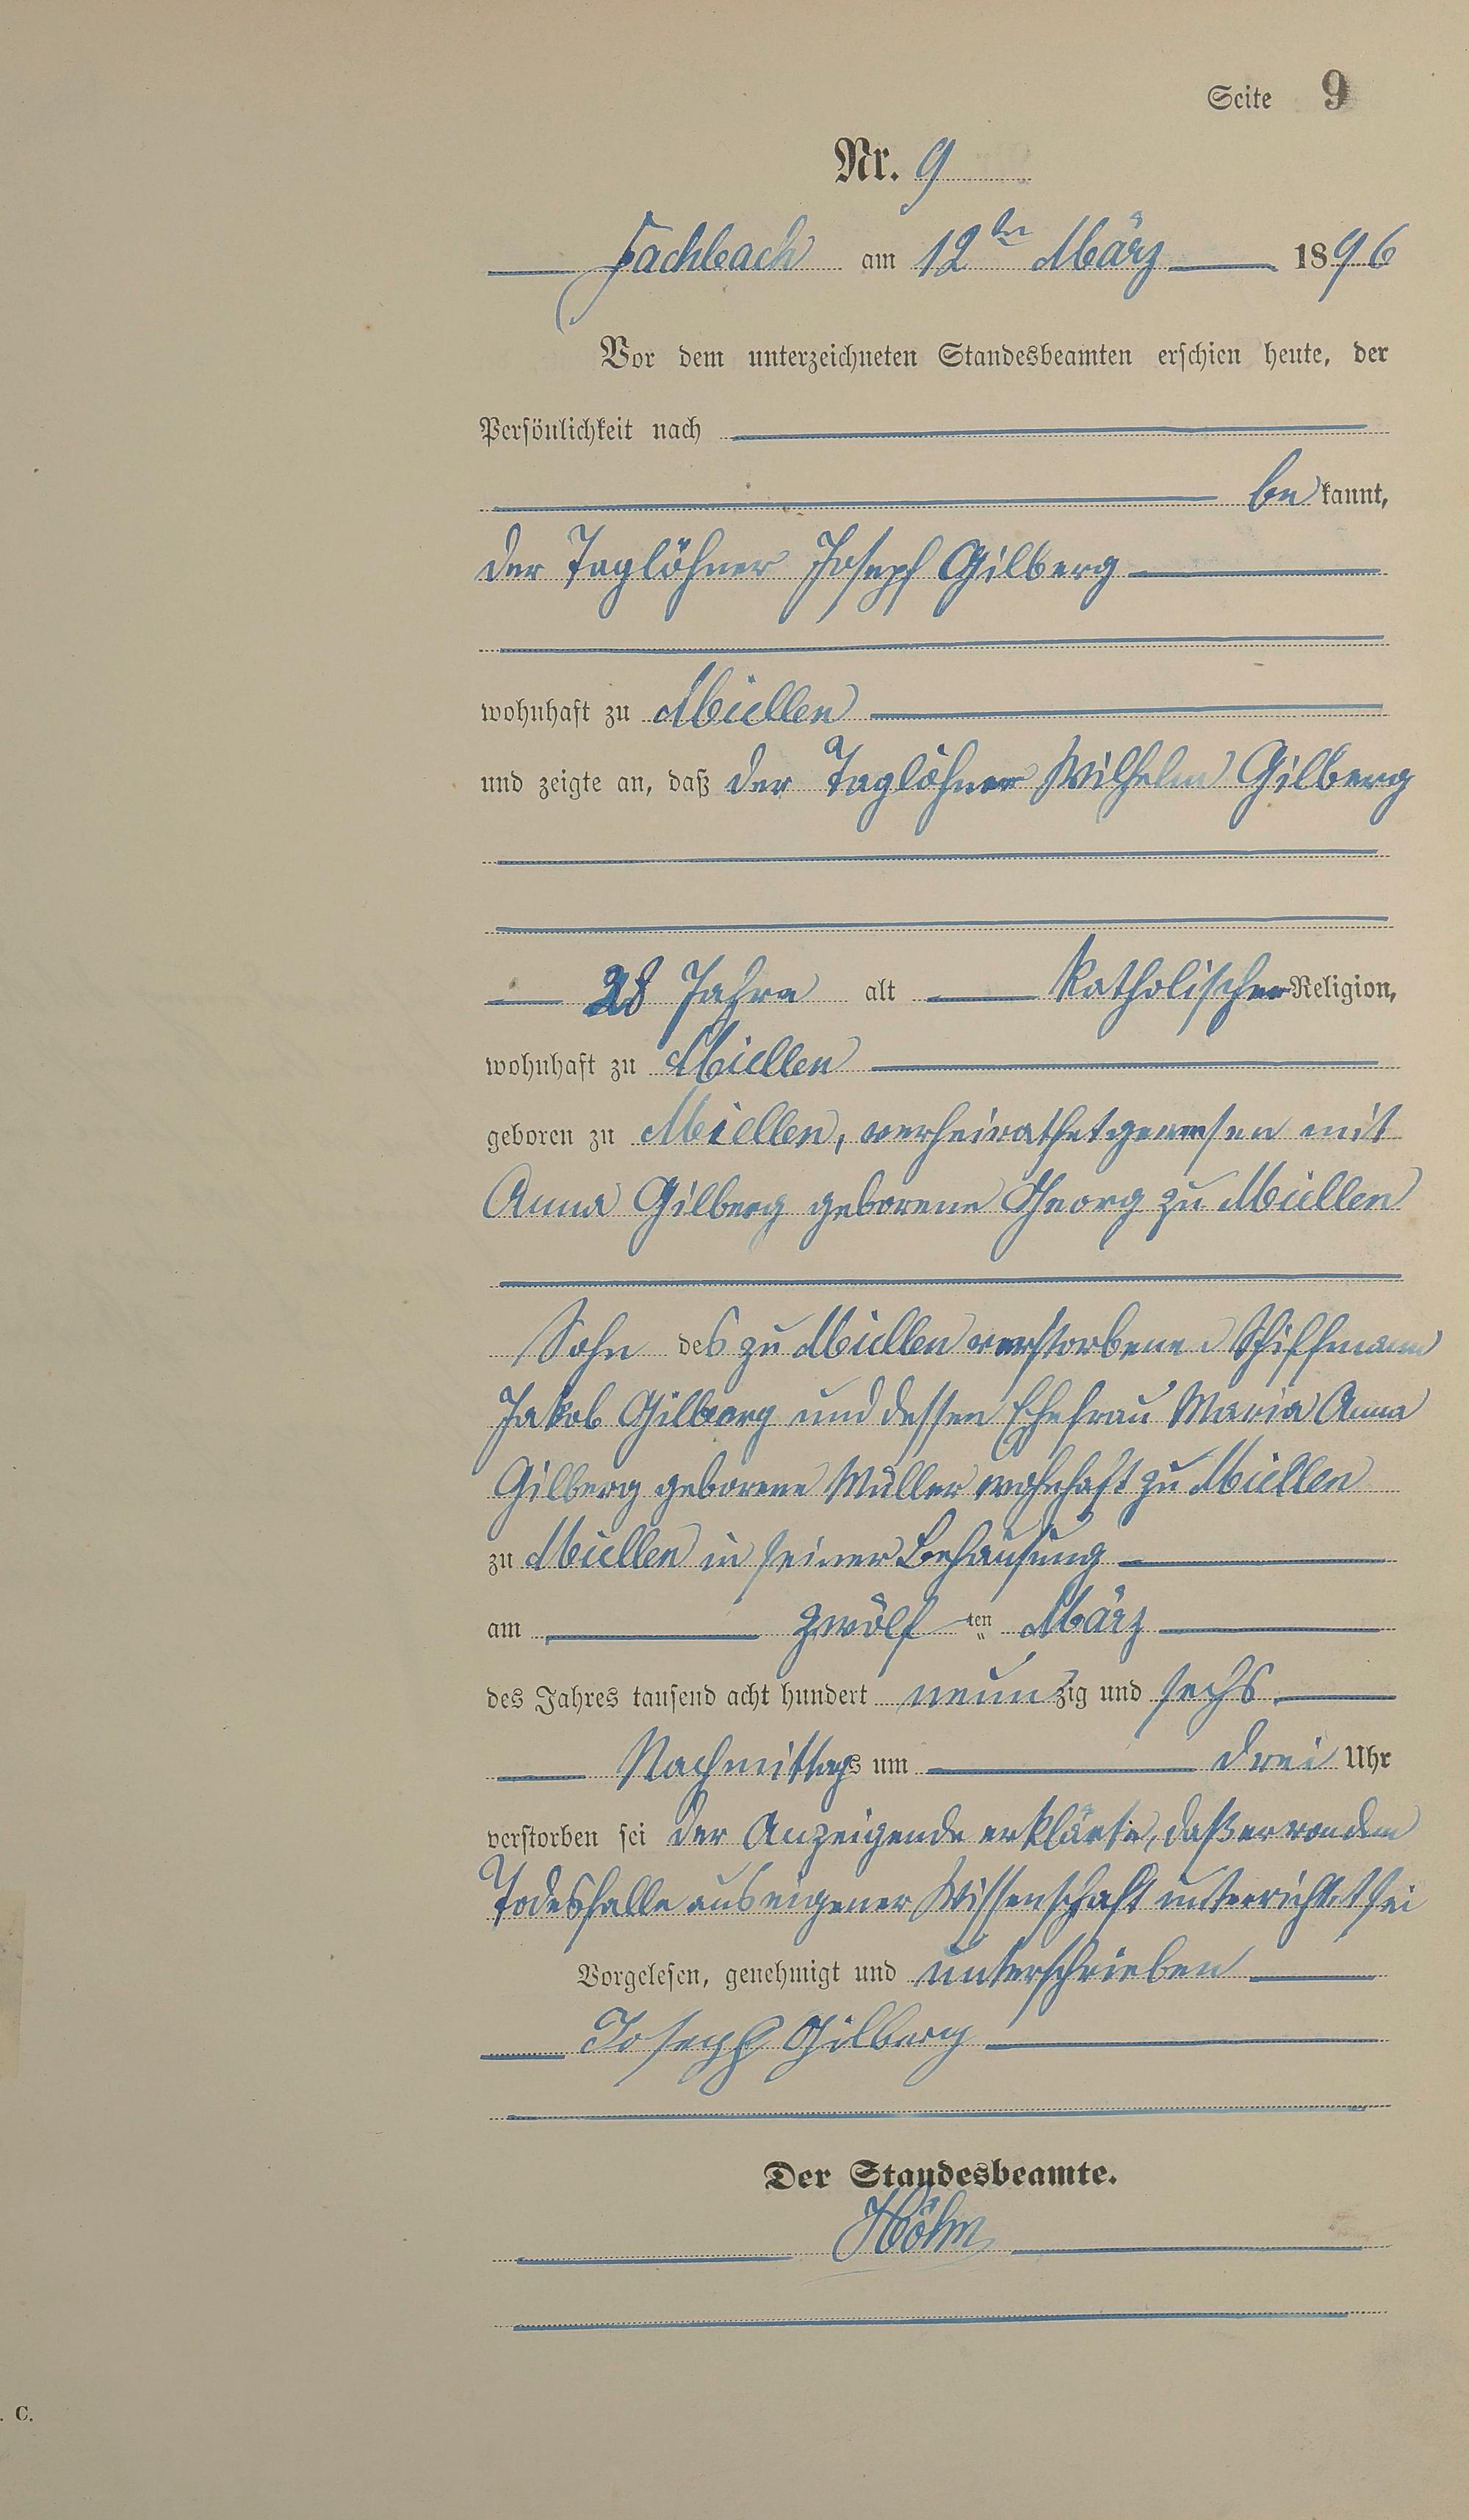 Seite 9
Nr. 9
Fachbach am 12ten März 1896
Vor dem unterzeichneten Standesbeamten erschien heute, der
Persönlichkeit nach
bekannt,
der Taglöhner Joseph Gilberg
wohnhaft zu Miellen
und zeigte an, daß der Taglöhner Wilhelm Gilberg
28 Jahre alt katholischer Religion,
wohnhaft zu Miellen
geboren zu Miellen, verheirathet gewesen mit
Anna Gilberg geborene Georg zu Miellen
Sohn des zu Miellen verstorbenen Schiffmann
Jakob Gilberg und dessen Ehefrau Maria Anna
Gilberg geborene Müller wohnhaft zu Miellen
zu Miellen in seiner Behausung
am zwölf ten März
des Jahres tausend acht hundert neunzig und sechs
Nachmittags um drei Uhr
verstorben sei der Anzeigende erklärte, daß er von dem
Todesfalle aus eigener Wissenschaft unterrichtet sei
Vorgelesen, genehmigt und unterschrieben
Joseph Gilberg
Der Standesbeamte.
. C.